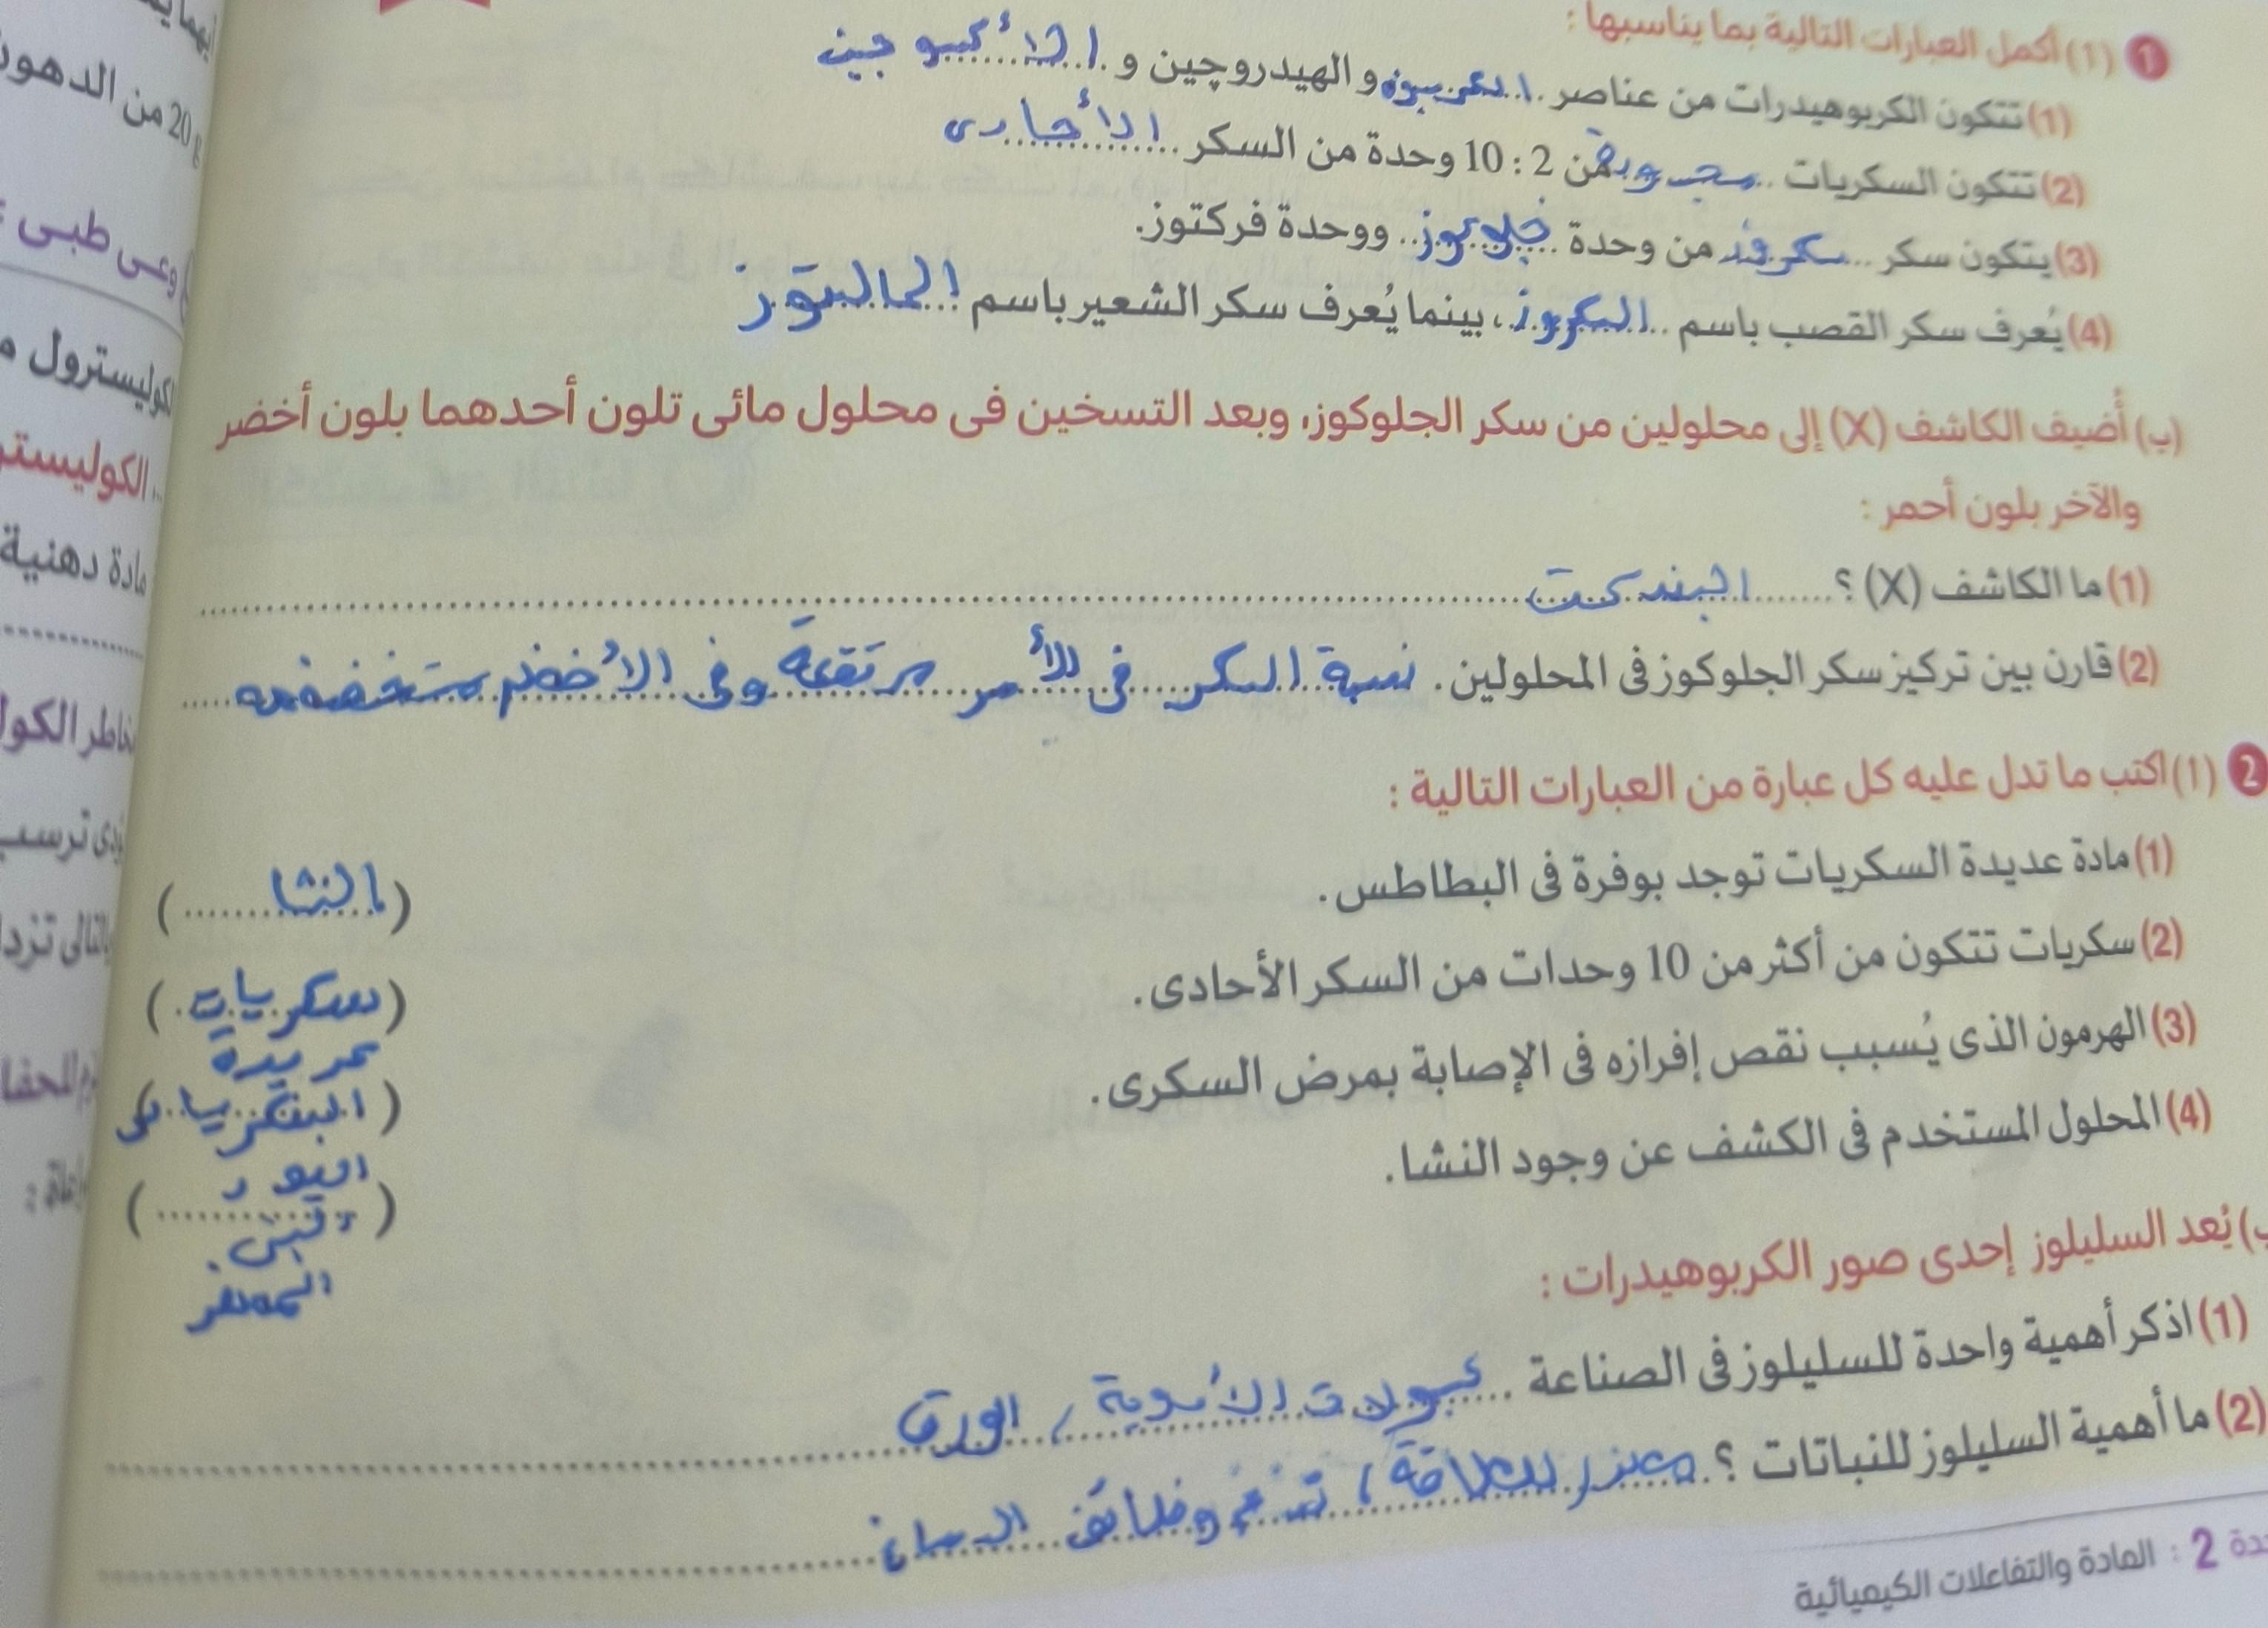 1 (1) أكمل العبارات التالية بما يناسبها :
(1) تتكون الكربوهيدرات من عناصر الكربون و الهيدروچين و الأكسوجين
(2) تتكون السكريات من 2 : 10 وحدة من السكر الأحادى
(3) يتكون سكر سكروز من وحدة جلوكوز ووحدة فركتوز.
(4) يُعرف سكر القصب باسم السكروز، بينما يُعرف سكر الشعير باسم المالتوز
(ب) أُضيف الكاشف (X) إلى محلولين من سكر الجلوكوز، وبعد التسخين فى محلول مائى تلون أحدهما بلون أخضر
والآخر بلون أحمر :
(1) ما الكاشف (X) ؟ البندكت
(2) قارن بين تركيز سكر الجلوكوز فى المحلولين. نسبة السكر فى الأحمر مرتفعة وفى الأخضر منخفضه
2 (1) اكتب ما تدل عليه كل عبارة من العبارات التالية :
(1) مادة عديدة السكريات توجد بوفرة فى البطاطس. (النشا)
(2) سكريات تتكون من أكثر من 10 وحدات من السكر الأحادى. (سكريات
(3) الهرمون الذى يُسبب نقص إفرازه فى الإصابة بمرض السكرى. (
(4) المحلول المستخدم فى الكشف عن وجود النشا. (اليود
) يُعد السليلوز إحدى صور الكربوهيدرات :
(1) اذكر أهمية واحدة للسليلوز فى الصناعة كبسولات الأدوية , الورق
(2) ما أهمية السليلوز للنباتات ؟ مصدر للطاقة ، تدعم وظائف الدماغ
2 : المادة والتفاعلات الكيميائية
20 g من الدهون
وعى طبى :
الكوليسترول
مادة دهنية